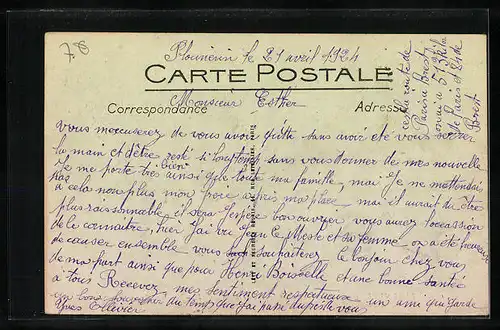 78
Plounérin le 21 avril 1924
CARTE POSTALE
Correspondance
Adresse
Monsieur Esther
c'est la route de
Paris à Brest
de Paris et 84 de
Brest
vous m'excuserez de vous avoir quitté sans avoir été vous serrer
la main et d'être resté si longtemps sans vous donner de mes nouvelle
Je me porte très bien ainsi que toute ma famille, mai Je ne m'attendai
pas à cela non plus mon père a pris ma place mai il aurait du être
plus raisonnable, il sera bon ouvryer vous aurez l'occasion
de le connaitre, hier J'ai vu Jean le Meste et sa femme on a été heureux
de causer ensemble, vous souhaiterez le bonjour chez vous
de ma part ainsi que pour Henri et une bonne santée
à tous Recevez mes sentiment respectueuse un ami qui garde
un bons souvenir du temps que j'ai passé auprès de vous
Yves Ollivier